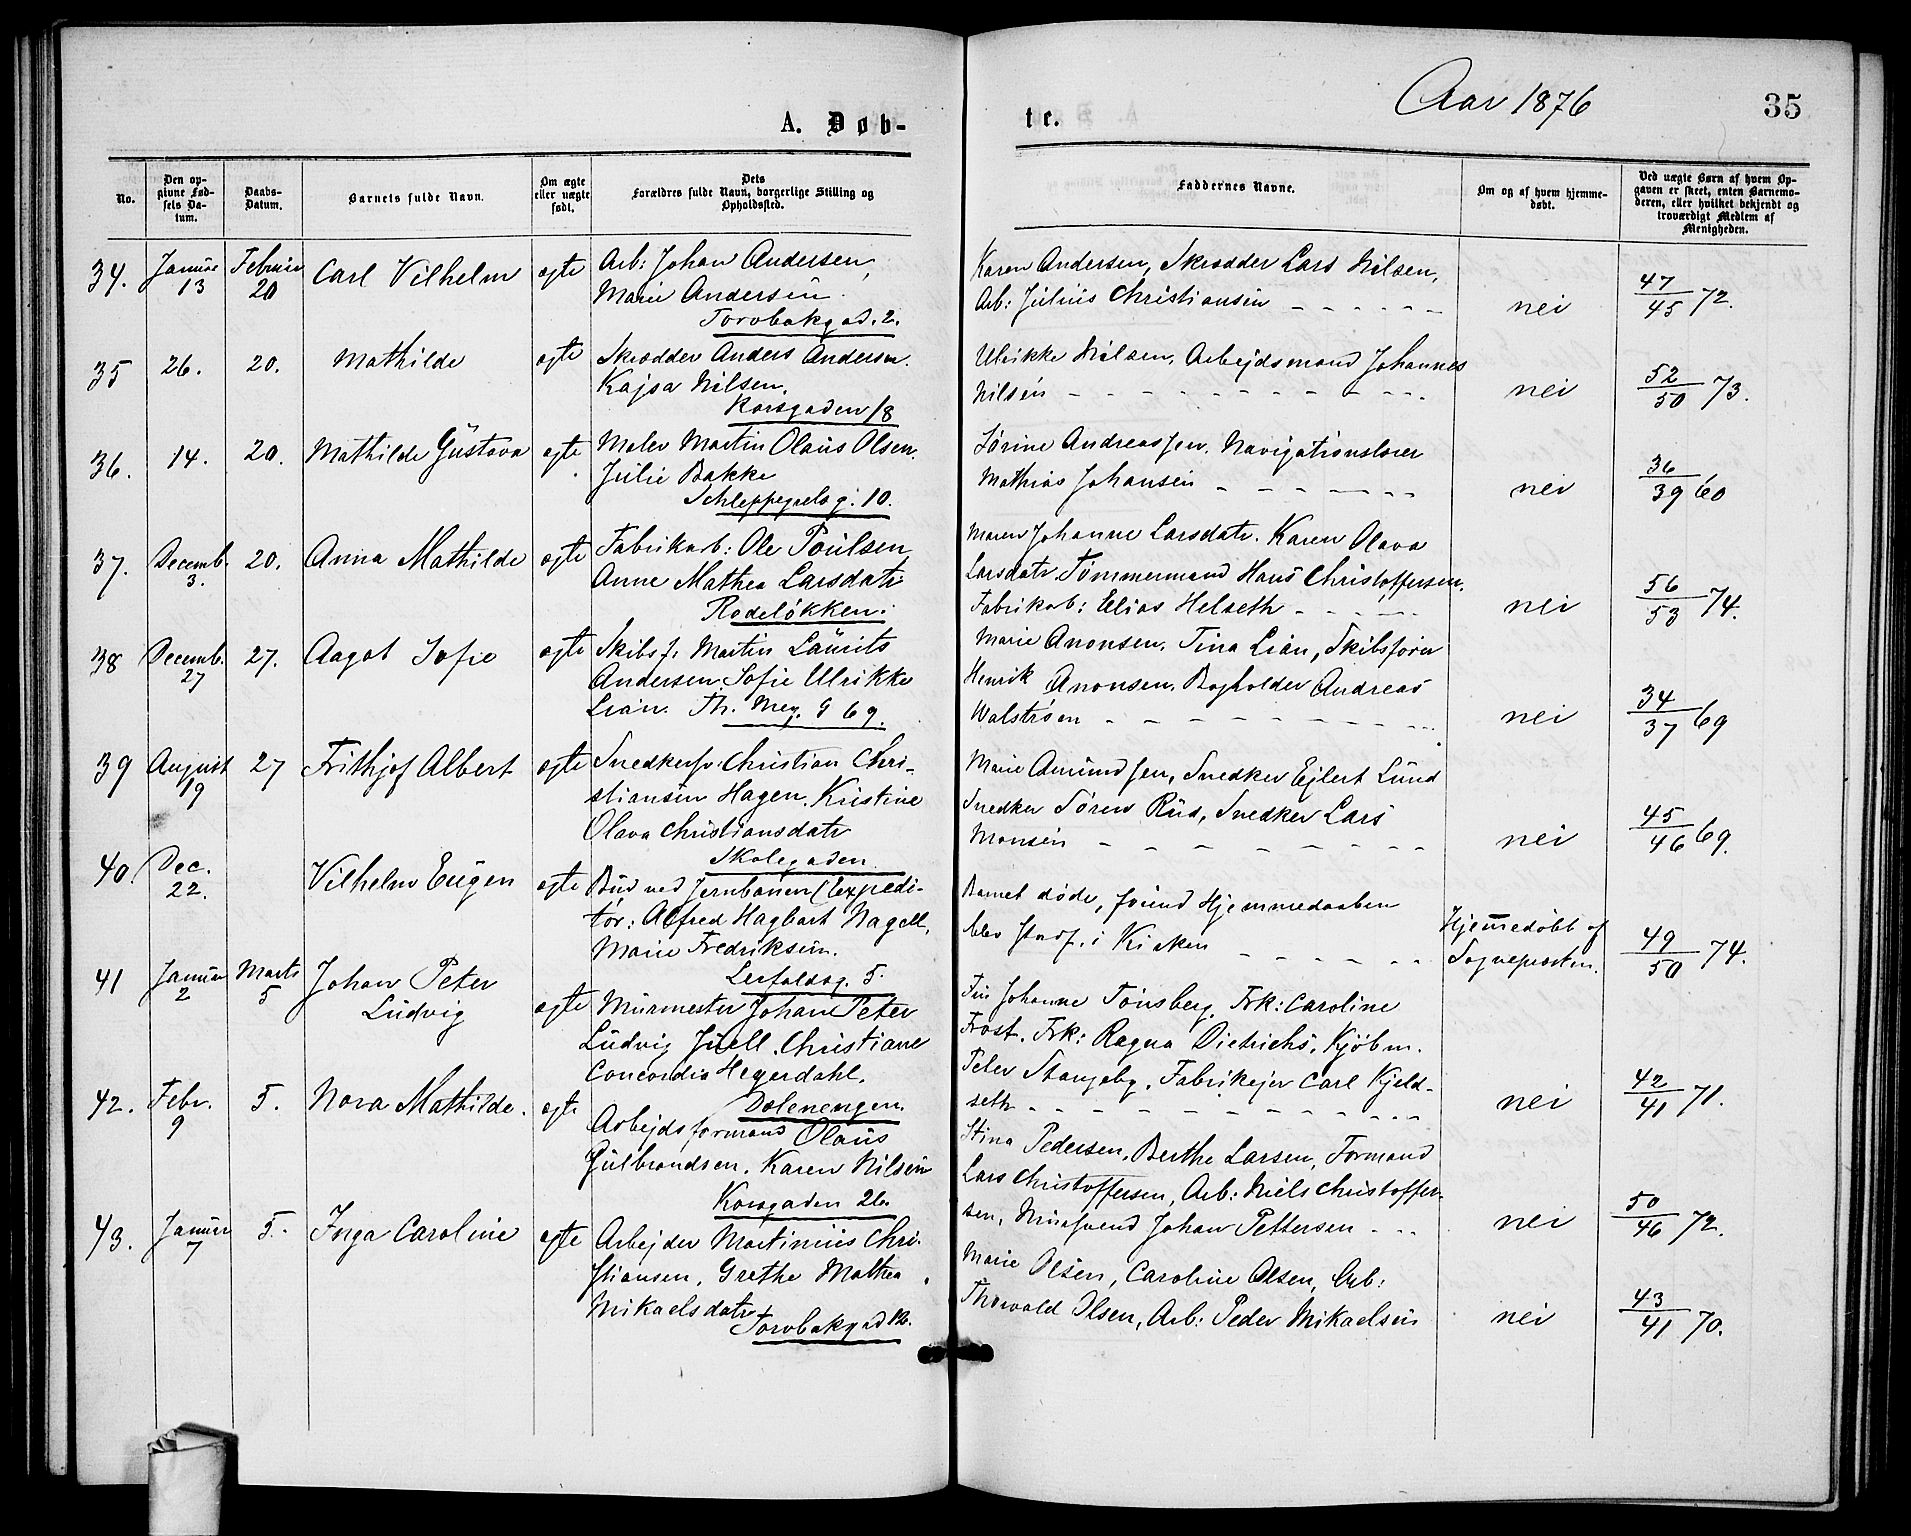 Aar 1876
35
A. Døb-
te.
No.
Den op-
givne Fød-
sels Da-
tum.
Daabs-
Datum.
Barnets fulde Navn.
Om ægte
eller uægte
født.
Dets
Forældres fulde Navn, borgerlige Stilling og
Opholdssted.
Faddernes Navne.
Om og af hvem hjemme-
døbt.
Ved uægte Børn af hvem Op-
gaven er skeet, enten Barnemo-
deren, eller hvilket bekjendt og
troværdigt Medlem af
Menigheden.
34. Januar 13 Februar 20 Carl Vilhelm ægte Arb: Johan Andersen,
Marie Andersen.
Torvbakgad. 2.
Karen Andersen, Skrædder Lars Nilsen,
Arb: Julius Christiansen nei 47/45 72.
35 26. 20. Mathilde ægte Skrædder Anders Andersen.
Kajsa Nilsen.
Korsgaden 18
Ulrikke Nilsen, Arbejdsmand Johannes
Nilsen nei 52/50 73.
36. 14. 20. Mathilde Gustava ægte Maler Martin Olaus Olsen.
Julie Bakke
Schleppegrelsg. 10.
Sørine Andreassen. Navigationslærer
Mathias Johansen nei 36/39 60
37. Decemb. 3. 20. Anna Mathilde ægte Fabrikarb: Ole Poulsen
Anne Mathea Larsdatr
Rodeløkken.
Maren Johanne Larsdatr. Karen Olava
Larsdatr Tømmermand Hans Christoffersen.
Fabrikarb: Elias Helseth nei 56/53 74.
38 Decemb. 27 27. Aagot Sofie ægte Skibsf. Martin Laurits
Andersen Sofie Ulrikke
Lian. Th. Mey. G 69.
Marie Anonsen, Tina Lian, Skibsfører
Henrik Anonsen. Bogholder Andreas
Walstrøm nei 34/37 69
39 August 19 27 Frithjof Albert ægte Snedkersv. Christian Chri-
stiansen Hagen. Kristine
Olava Christiansdatr
Skolegaden
Marie Amundsen, Snedker Ejlert Lund
Snedker Søren Rud, Snedker Lars
Monsen nei 45/46 69.
40. Dec. 22. Vilhelm Eugen ægte Bud ved Jernbanen (Expedi-
tør: Alfred Hagbart Nagell,
Marie Fredriksen.
Lerfaldsg. 5.
Barnet døde, førend Hjemmedaaben
blev stadf. i Kirken Hjemmedøbt af
Sognepresten. 49/50 74.
41 Januar 2 Marts 5 Johan Peter
Ludvig ægte Murmester Johan Peter
Ludvig Juell. Christiane
Concordia Hegerdahl.
Dælenengen.
Fru Johanne Tønsberg, Frk: Caroline
Frost. Frk: Ragna Dietrichs, Kjøbm.
Peter Stangeby. Fabrikejer Carl Kjeld-
seth nei 42/41 71.
42. Febr. 9 5. Nora Mathilde. ægte Arbejdsformand Olaus
Gulbrandsen. Karen Nilsen
Korsgaden 26.
Stina Pedersen. Berthe Larsen, Formand
Lars Christoffersen, Arb: Niels Christoffer-
sen, Mursvend Johan Pettersen nei 50/46 72.
43. Januar 7 5. Inga Caroline ægte Arbejder Martinius Chri-
stiansen, Grethe Mathea
Mikaelsdatr
Torvbakgad 12.
Marie Olsen, Caroline Olsen, Arb:
Thorvald Olsen, Arb: Peder Mikaelsen nei 43/41 70.